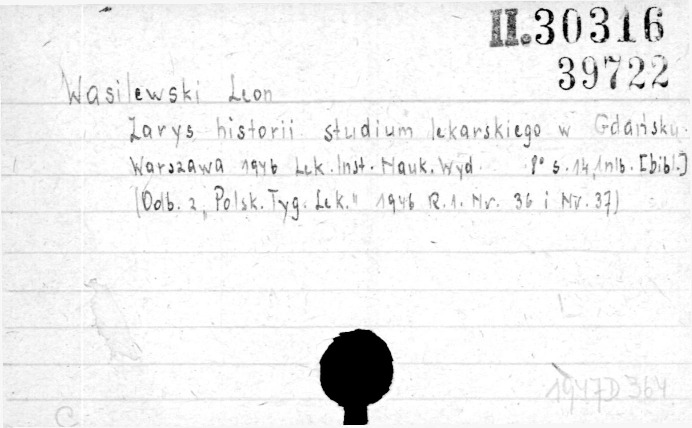 II.30316
39722
Wasilewski Leon
Zarys historii studium lekarskiego w Gdańsku.
Warszawa 1946 Lek. Inst. Nauk. Wyd. 8° s. 14, 1 nlb. [bibl.]
(Odb. z „Polsk. Tyg. Lek." 1946 R. 1. Nr. 36 i Nr. 37)
1947 D 364
C